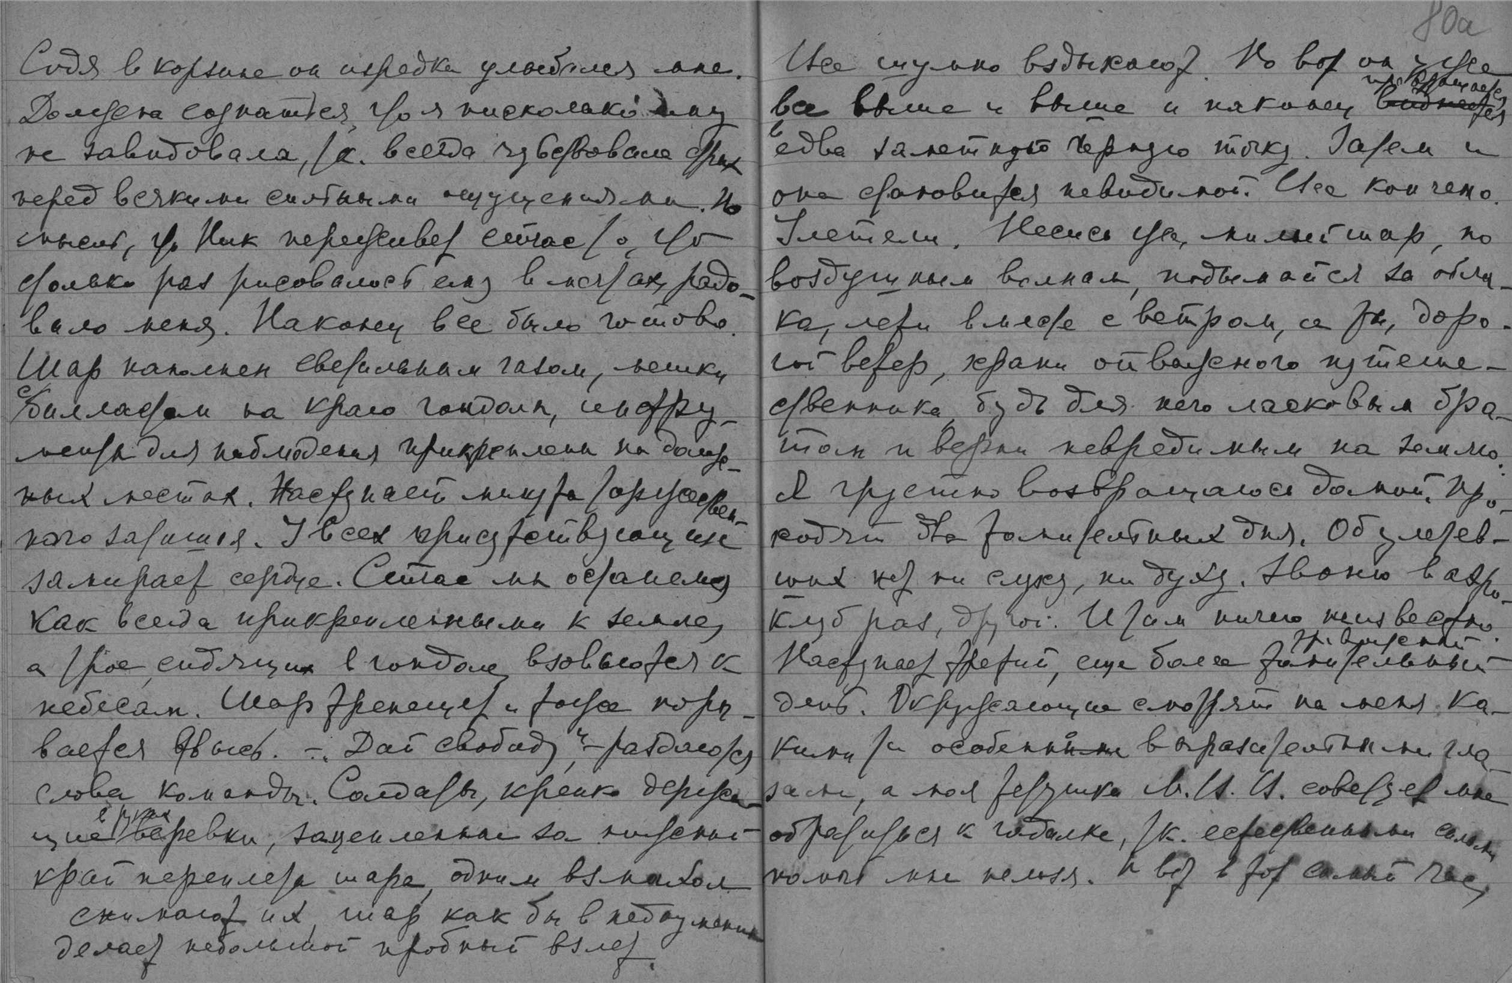 Сидя в корзине он изредка улыбался мне.
Должна сознаться, что я нисколько ему
не завидовала, т.к. всегда чувствовала страх
перед всякими сильными ощущениями. Но
мысль, что Ник переживет сейчас то, что
столько раз рисовалось ему в мечтах, радо-
вало меня. Наконец все было готово.
Шар наполнен светильным газом, мешки
с балластом на краю гондолы, инстру-
менты для наблюдения прикреплены на долж-
ных местах. Наступает минута торжествен-
ного затишья. У всех присутствующих
замирает сердце. Сейчас мы останемся
как всегда прикрепленными к земле,
а трое, сидящих в гондоле, взовьются к
небесам. Шар трепещет и тоже поры-
вается ввысь. – „Дай свободу" – раздаются
слова команды. Солдаты, крепко держа-
щие в руках веревки, зацепленные за нижний
край переплета шара, одним взмахом
снимают их, шар как бы в недоумении
делает небольшой пробный взлет.
80а
Все шумно вздыхают. Но вот он уже
все выше и выше и наконец превращается
в едва заметную черную точку. Затем и
она становится невидимой. Все кончено.
Улетели. Несись же, милый шар, по
воздушным волнам, подымайся за обла-
ка, лети вместе с ветром, а ты, доро-
гой ветер, храни отважного путеше-
ственника, будь для него ласковым бра-
том и верни невредимым на землю.
Я грустно возвращаюсь домой. Про-
ходят два томительных дня. Об улетев-
ших нет ни слуху, ни духу. Звоню в аэро-
клуб раз, другой. И там ничего неизвестно.
Наступает третий, еще более томительный
день. Окружающие смотрят на меня ка-
кими-то особенными выразительными гла-
зами, а моя тетушка М.И.И. советует мне
обратиться к гадалке, т.к. естественными силами
помочь мне нельзя. И вот в тот самый час,